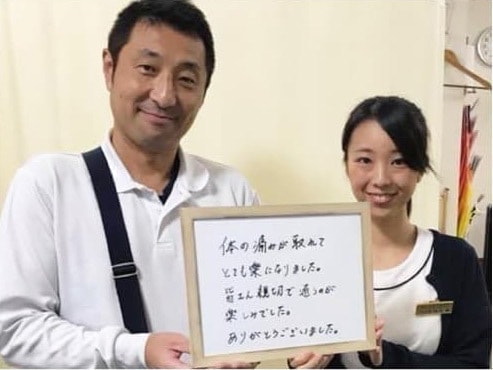 体の痛みが取れて
とても楽になりました。
皆さん親切で通うのが
楽しみでした。
ありがとうございました。